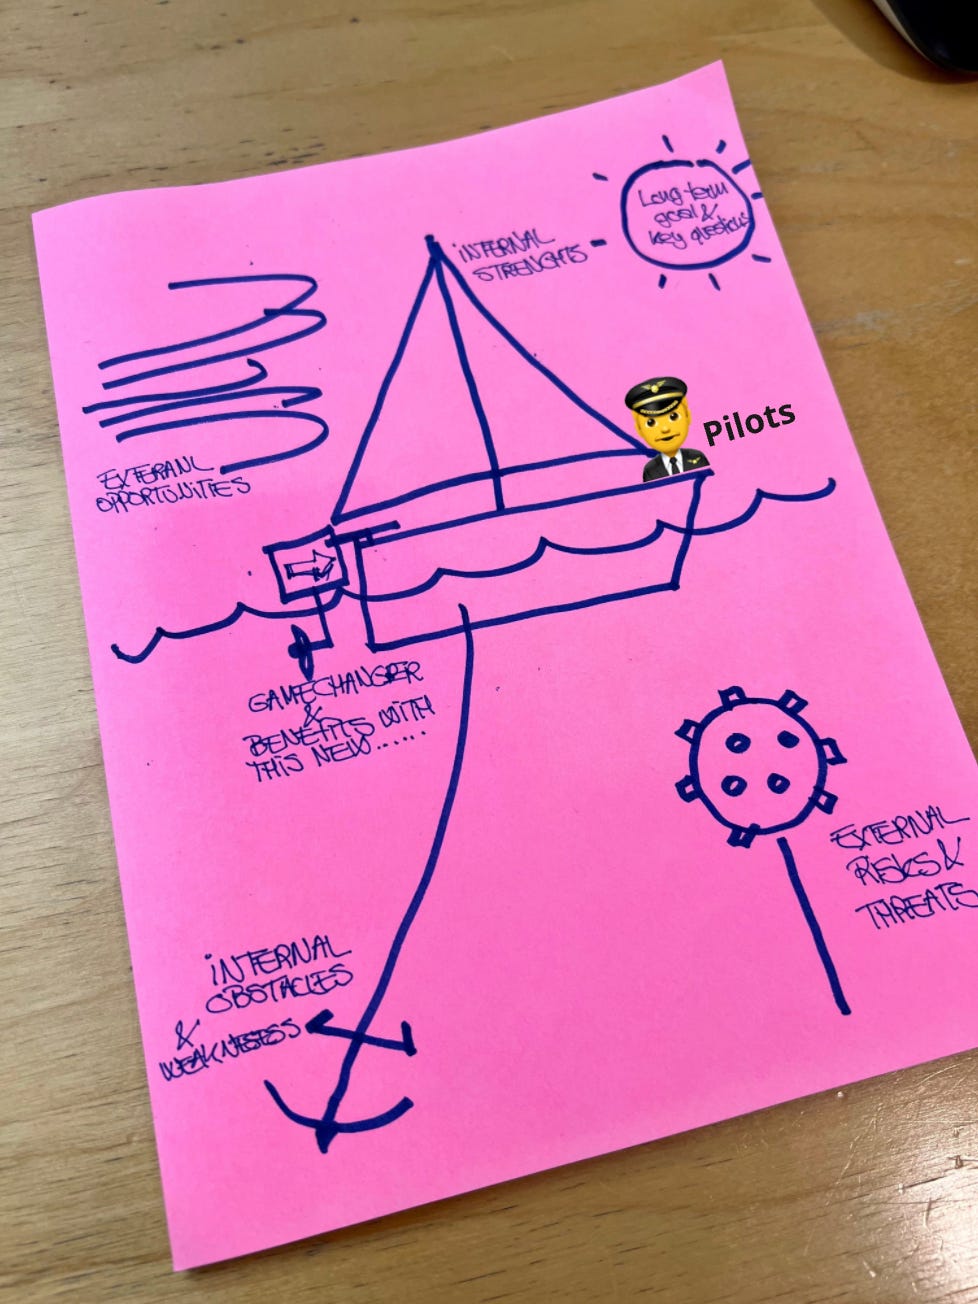 Long-term
goal &
key questions
INTERNAL
STRENGHTS
Pilots
EXTERANL
OPPORTUNITIES
GAMECHANGER
&
BENEFITS WITH
THIS NEW......
EXTERNAL
RISKS &
THREATS
INTERNAL
OBSTACLES
&
WEAKNESSES